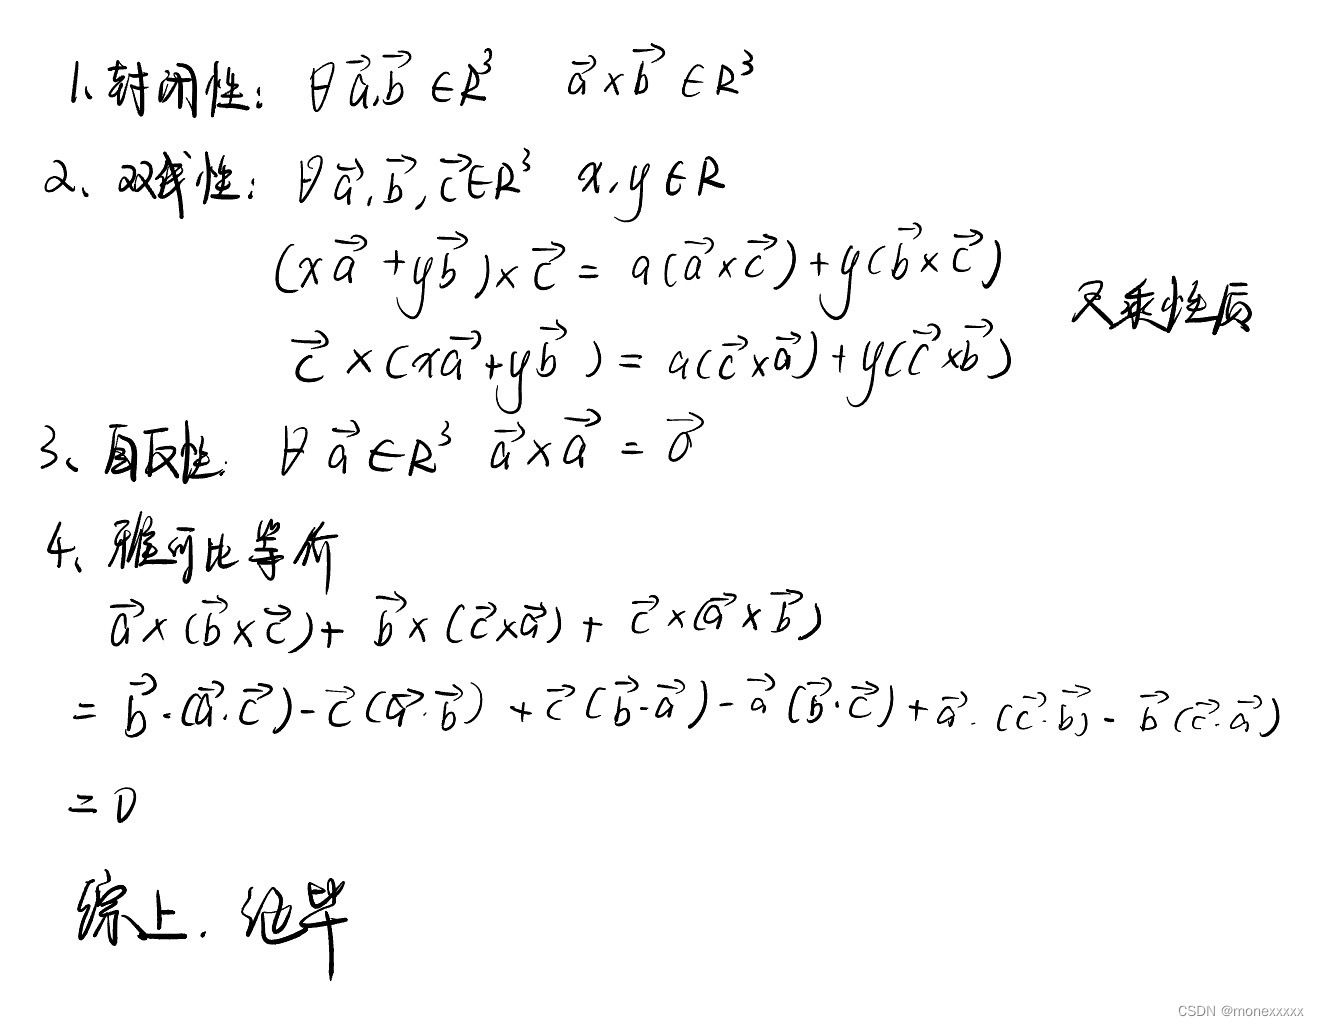 1、封闭性: ∀ a⃗,b⃗ ∈R³  a⃗×b⃗ ∈R³
2、双线性: ∀ a⃗,b⃗,c⃗∈R³  x,y∈R
(xa⃗+yb⃗)×c⃗ = a(a⃗×c⃗)+y(b⃗×c⃗)
叉乘性质
c⃗×(xa⃗+yb⃗) = a(c⃗×a⃗)+y(c⃗×b⃗)
3、自反性: ∀ a⃗∈R³  a⃗×a⃗ = 0⃗
4、雅可比等价
a⃗×(b⃗×c⃗)+ b⃗×(c⃗×a⃗) + c⃗×(a⃗×b⃗)
= b⃗·(a⃗·c⃗)-c⃗(a⃗·b⃗) +c⃗(b⃗·a⃗)-a⃗(b⃗·c⃗)+a⃗·(c⃗·b⃗)- b⃗(c⃗·a⃗)
=0
综上. 毕
CSDN @monexxxxx